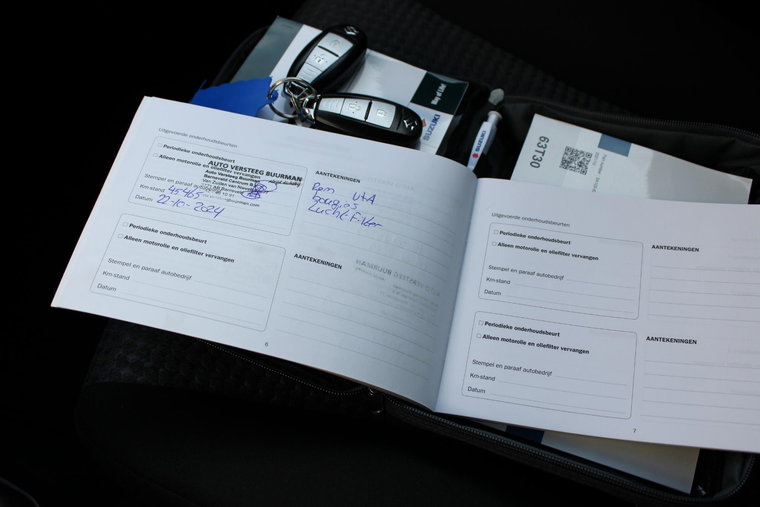 Way of Life!
SUZUKI
SUZUKI
63T30
Uitgevoerde onderhoudsbeurten
Periodieke onderhoudsbeurt
Alleen motorolie en oliefilter vervangen
AUTO VERSTEEG BUURMAN
Auto Versteeg Buurman
Barneveld Centrum B.V.
Stempel en paraaf
Km-stand 45465
Datum 22-10-2024
AANTEKENINGEN
Rem
bougies
Luchtfilter
Periodieke onderhoudsbeurt
Alleen motorolie en oliefilter vervangen
Stempel en paraaf autobedrijf
Km-stand
Datum
AANTEKENINGEN
6
Uitgevoerde onderhoudsbeurten
Periodieke onderhoudsbeurt
Alleen motorolie en oliefilter vervangen
Stempel en paraaf autobedrijf
Km-stand
Datum
AANTEKENINGEN
Periodieke onderhoudsbeurt
Alleen motorolie en oliefilter vervangen
Stempel en paraaf autobedrijf
Km-stand
Datum
AANTEKENINGEN
7